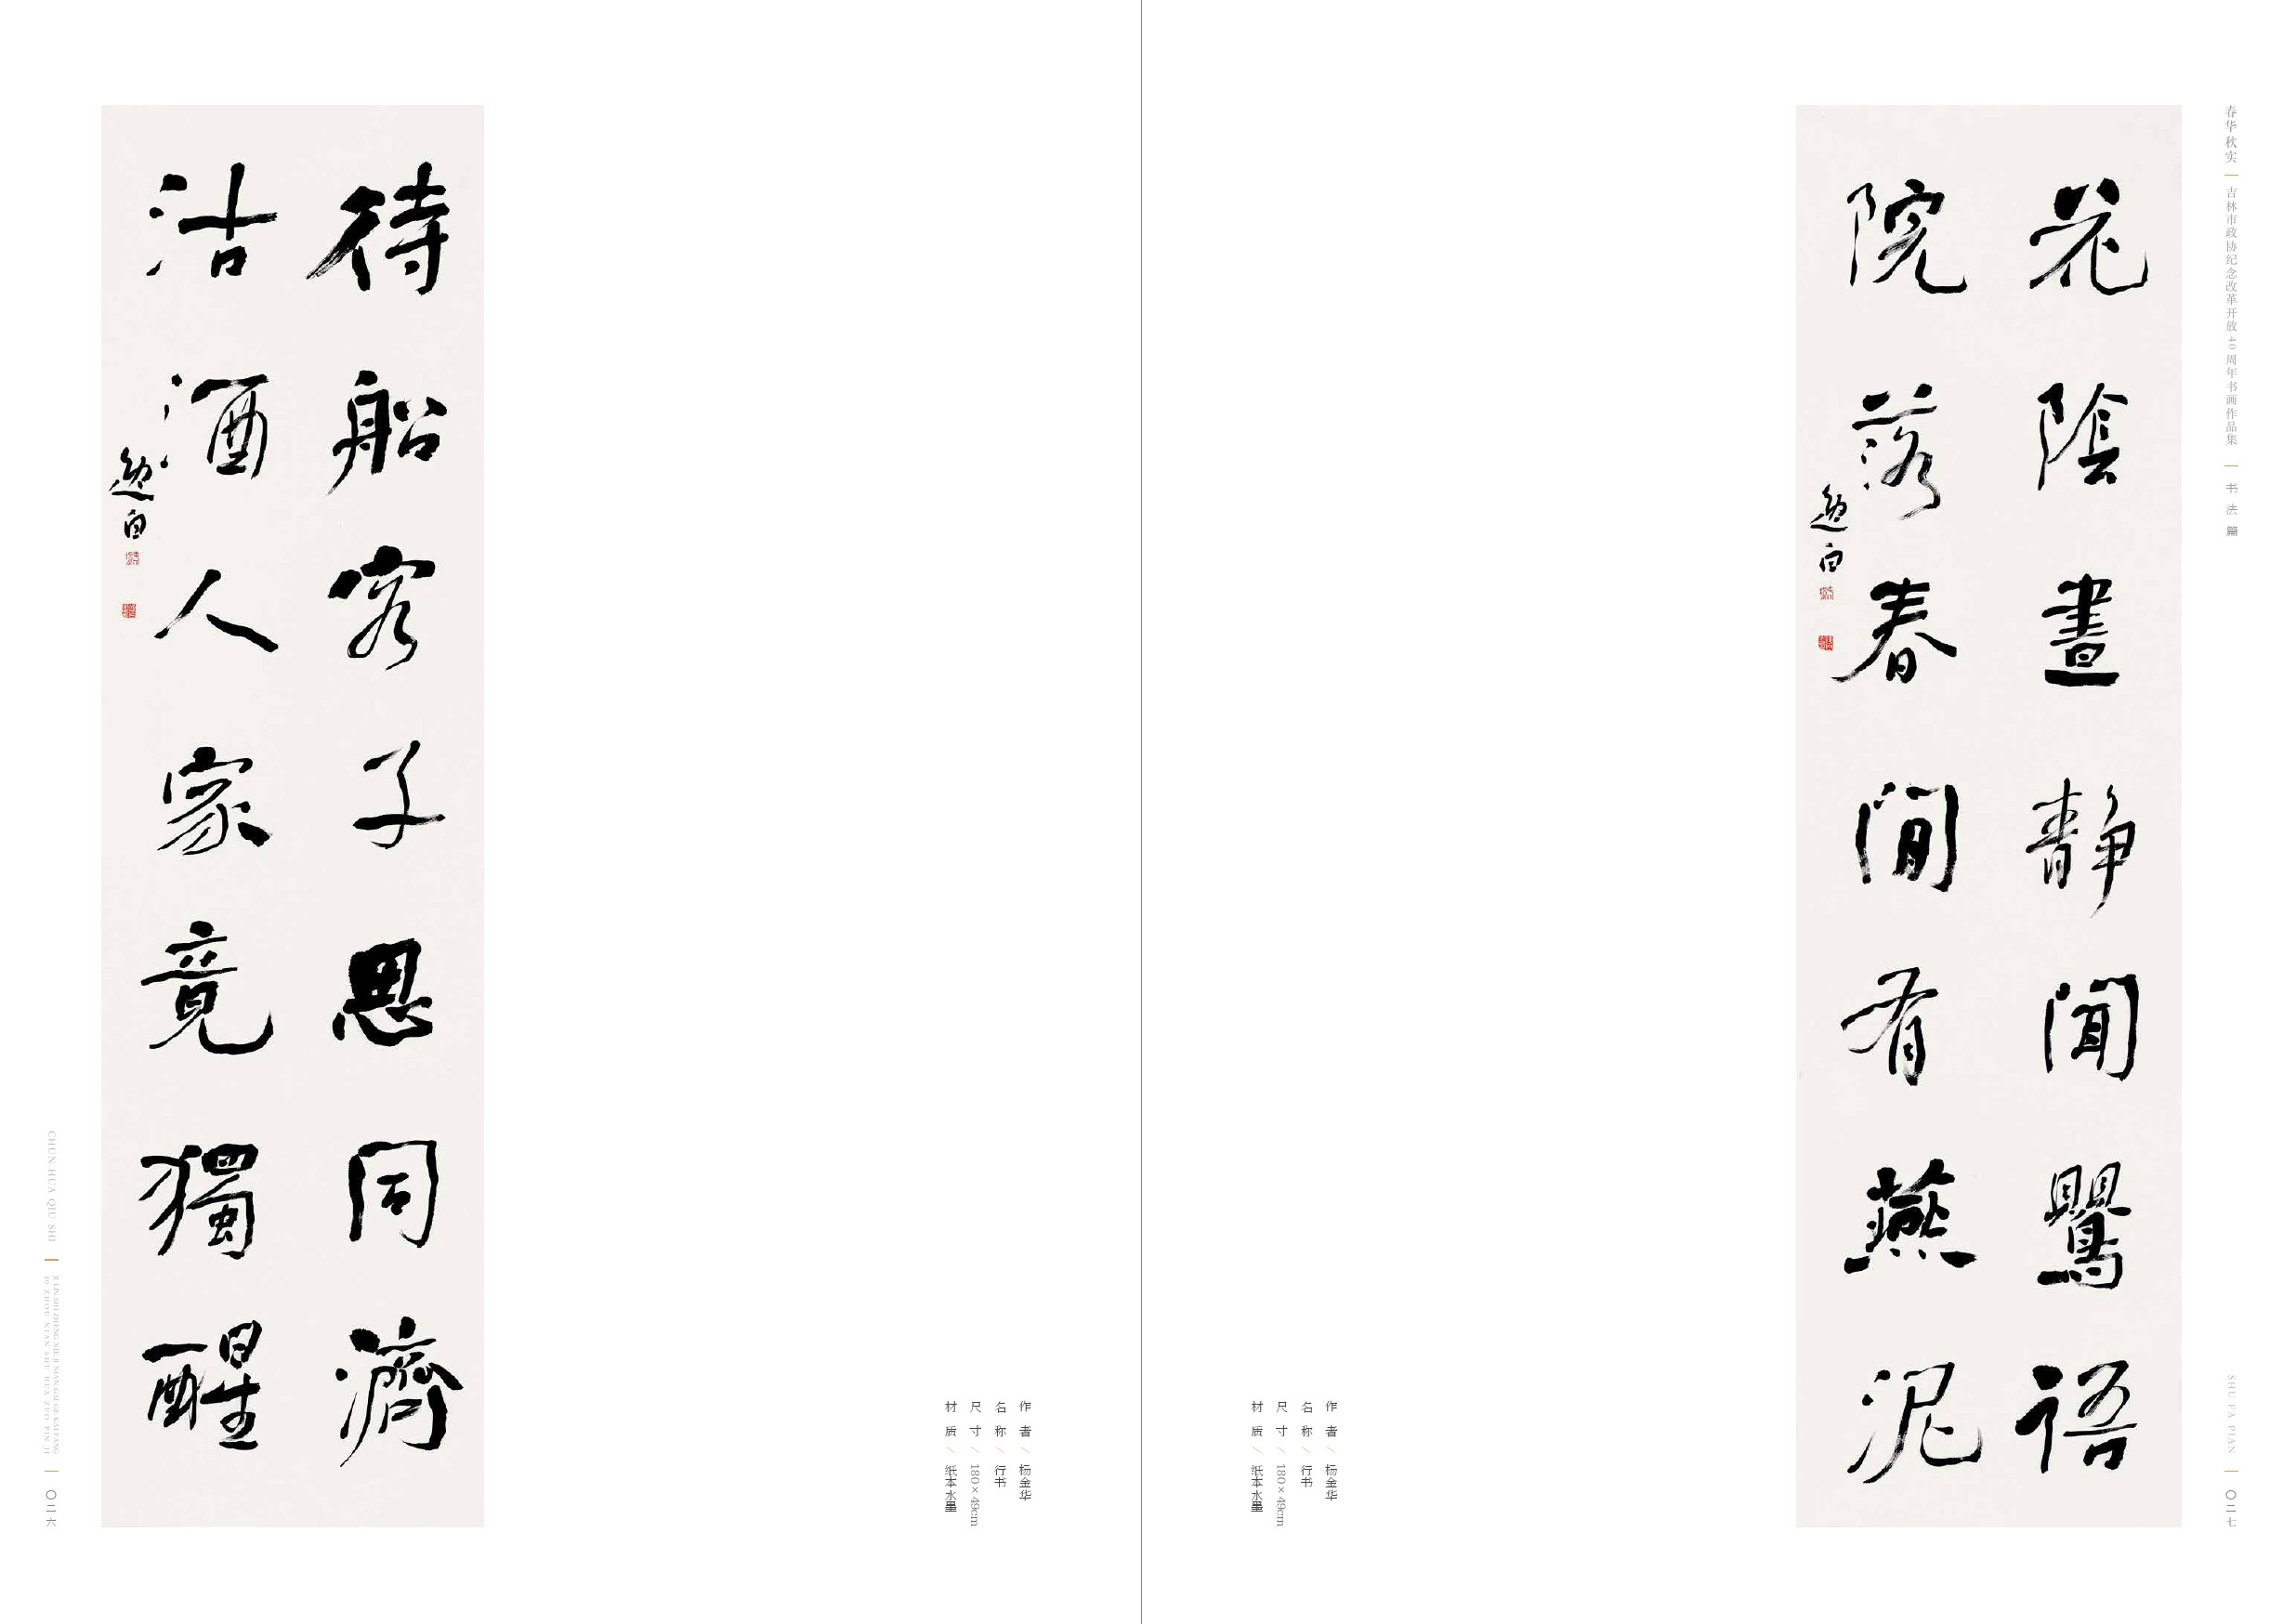 待船客子思同濟
沽酒人家竟獨醒
逸白
作者/杨金华
名称/行书
尺寸/180×49cm
材质/纸本水墨
CHUN HUA QIU SHI
JI LIN SHI ZHENG XIE JI NIAN GAI GE KAI FANG
40 ZHOU NIAN SHU HUA ZUO PIN JI
〇二六
春华秋实
吉林市政协纪念改革开放40周年书画作品集
书法篇
花陰晝靜聞鸎語
院落春閒有燕泥
逸白
作者/杨金华
名称/行书
尺寸/180×49cm
材质/纸本水墨
SHU FA PIAN
〇二七